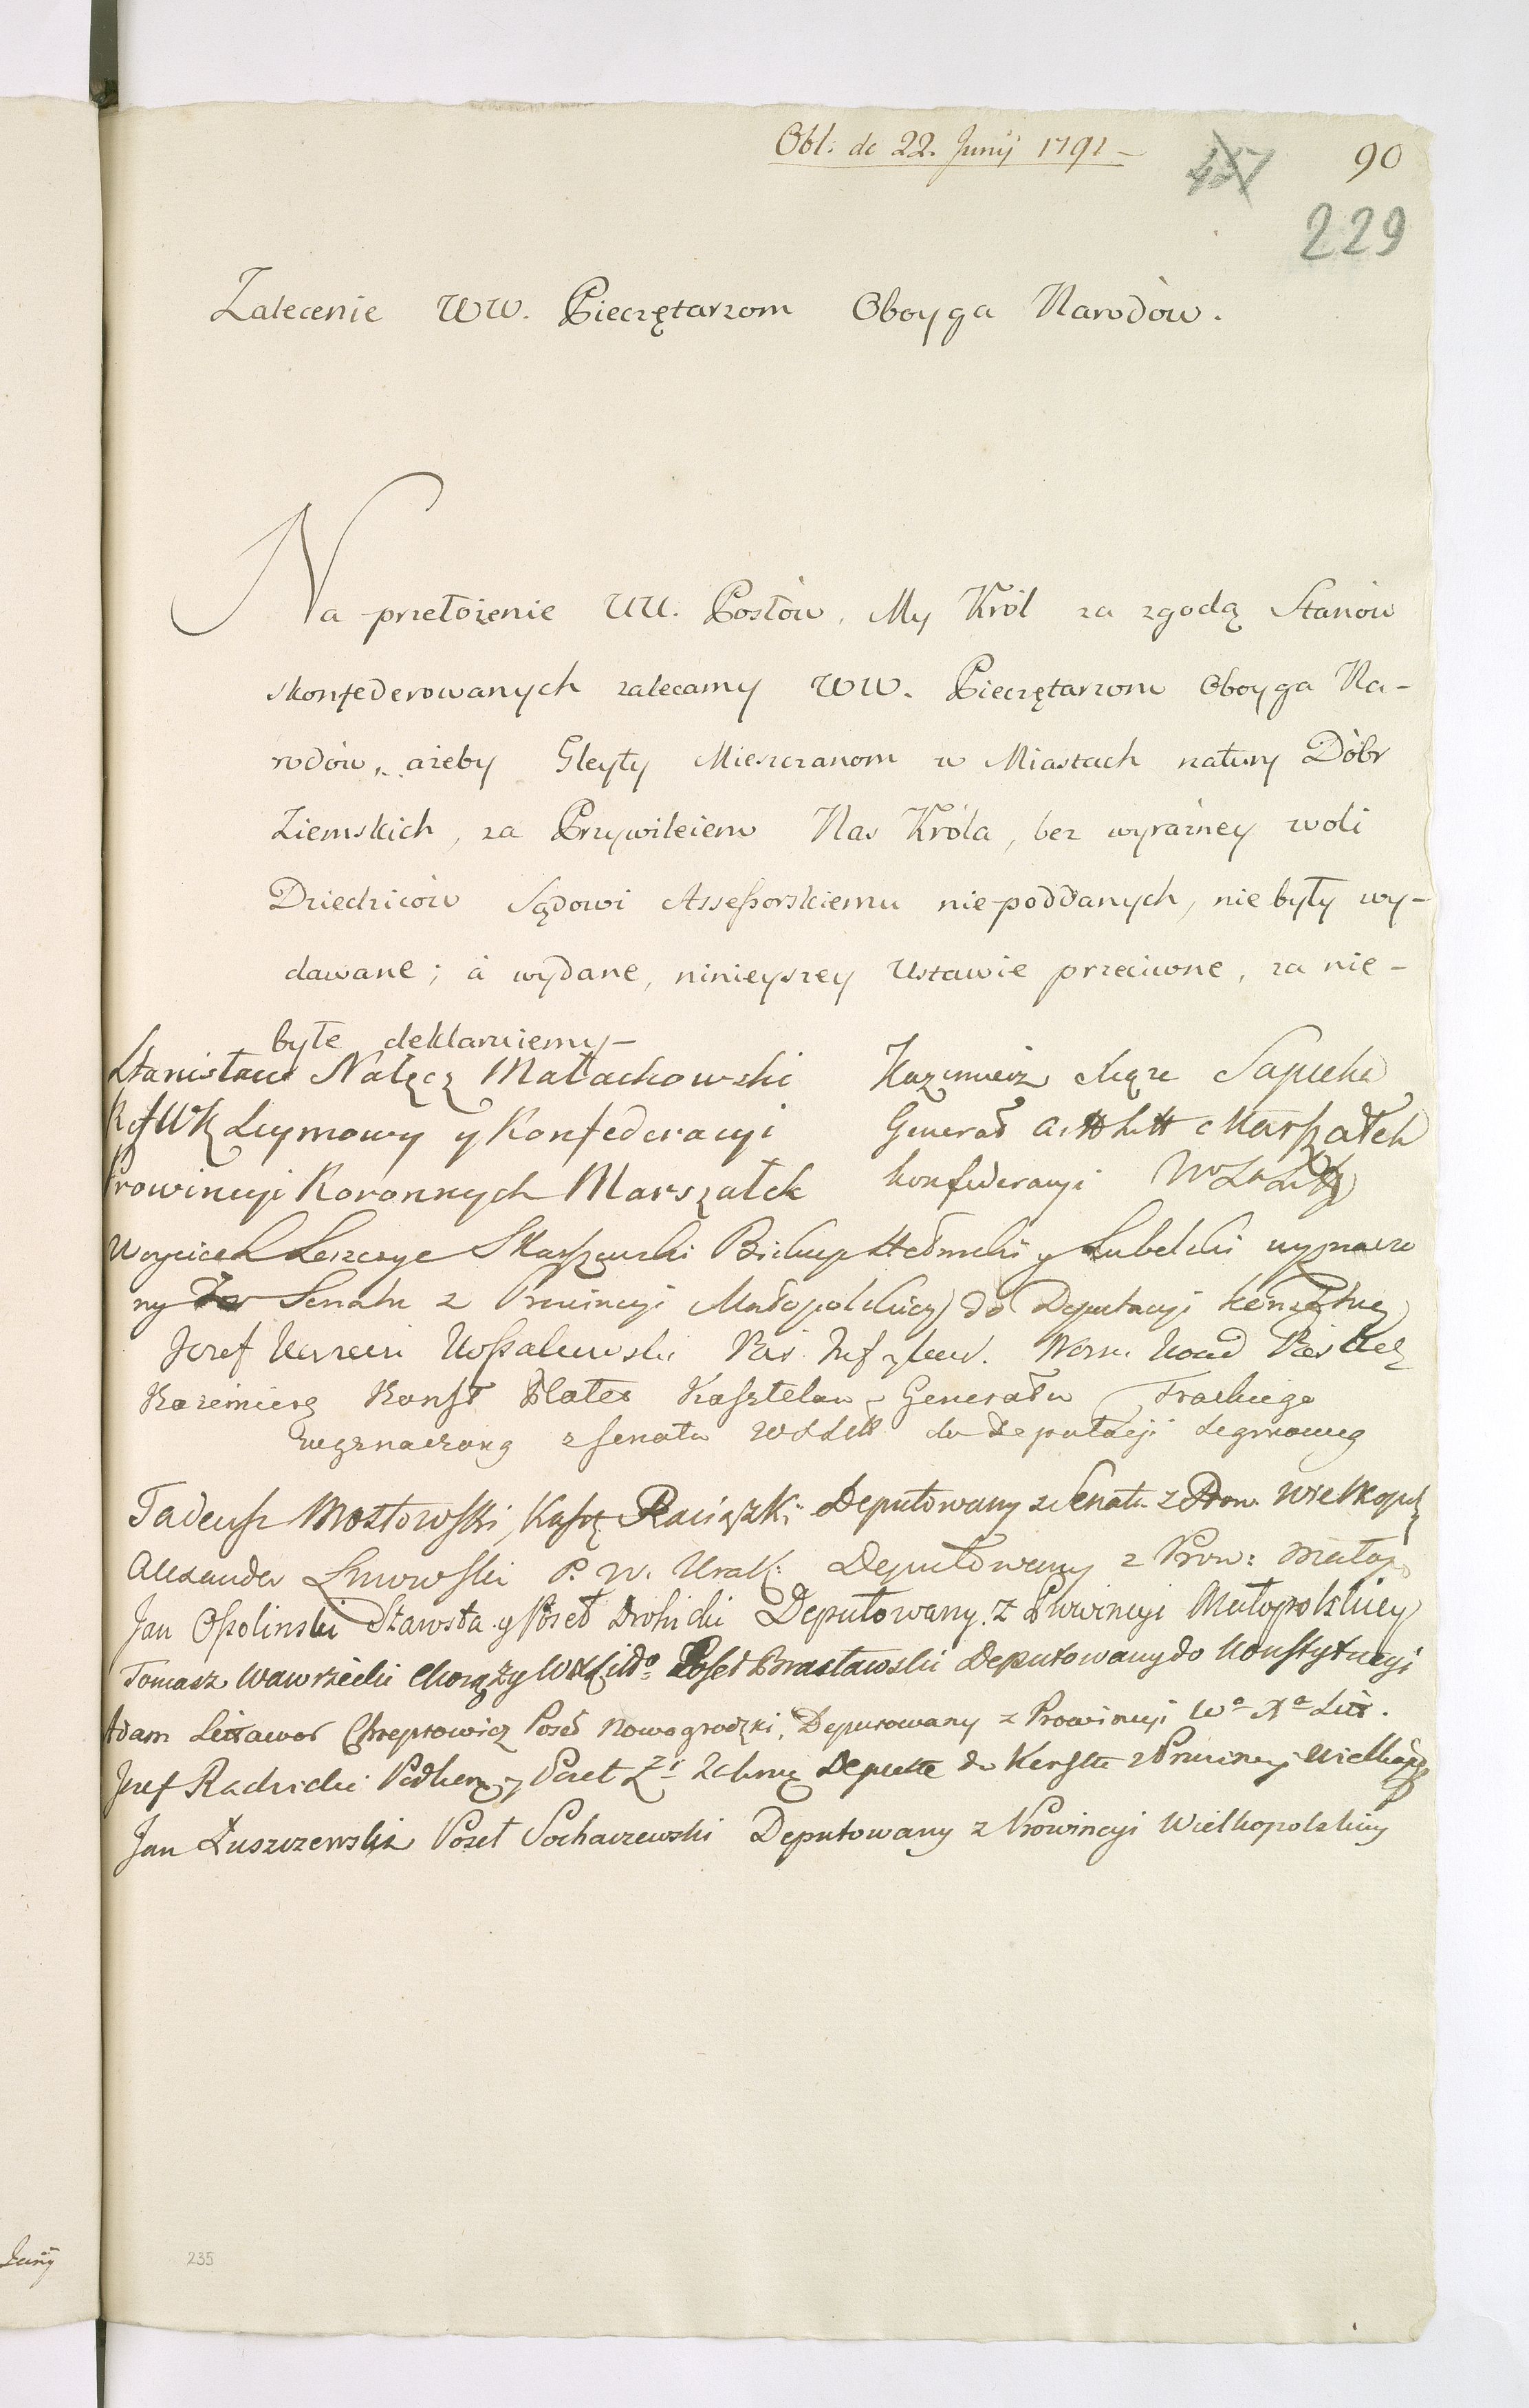 Obl: de 22. Junij 1791 –
90
229
Zalecenie WW. Pieczętarzom Oboyga Narodów.
Na przełożenie UU. Posłów, My Król za zgodą Stanów
skonfederowanych zalecamy WW. Pieczętarzom Oboyga Na-
rodów, ażeby Gleyty Mieszczanom w Miastach natury Dóbr
Ziemskich, za Przywileiem Nas Króla, bez wyraźney woli
Dziedziców Sądowi Assessorskiemu niepoddanych, nie były wy-
dawane; á wydane, ninieyszey Ustawie przeciwne, za nie-
byłe deklaruiemy –
Stanisław Nałęcz Małachowski
Ref WK Seymowy y Konfederacyi
Prowincyi Koronnych Marszałek
Kazimierz Xiąże Sapieha
Generał Art Litt Marszałek
Konfederacyi WXLit
Woyciech Leszczyc Skarszewski Biskup Chełmski y Lubelski wyznaczo
ny Senatu z Prowincyi Małopolskiey do Deputacyi
Jozef Kossakowski
Kazimierz Konst Plater Kasztelan Generału Trockiego
wyznaczony z Senatu WXLitt do Deputacyi Seymowey
Tadeusz Mostowski Kaszt Raciążki Deputowany z Senatu z Prow. Wielkopol
Alexander Linowski P. W. Krak: Deputowany z Prow: Małop
Jan Ossolinski Starosta y Poseł Drohicki Deputowany z Prowincyi Małopolskiey
Tomasz Wawrzecki Chorąży WXLitto Poseł Brasławski Deputowany do Konstytucyi
Adam Littawor Chreptowicz Poseł Nowogrodzki, Deputowany z Prowincyi Wo Xa Litt.
Jozef Radzicki Podkom y Poseł Zi Zakrocz Deputt do Konstt z Prowincyi Wielkopol
Jan Łuszczewski Poseł Sochaczewski Deputowany z Prowincyi Wielkopolskiey
Junij
235